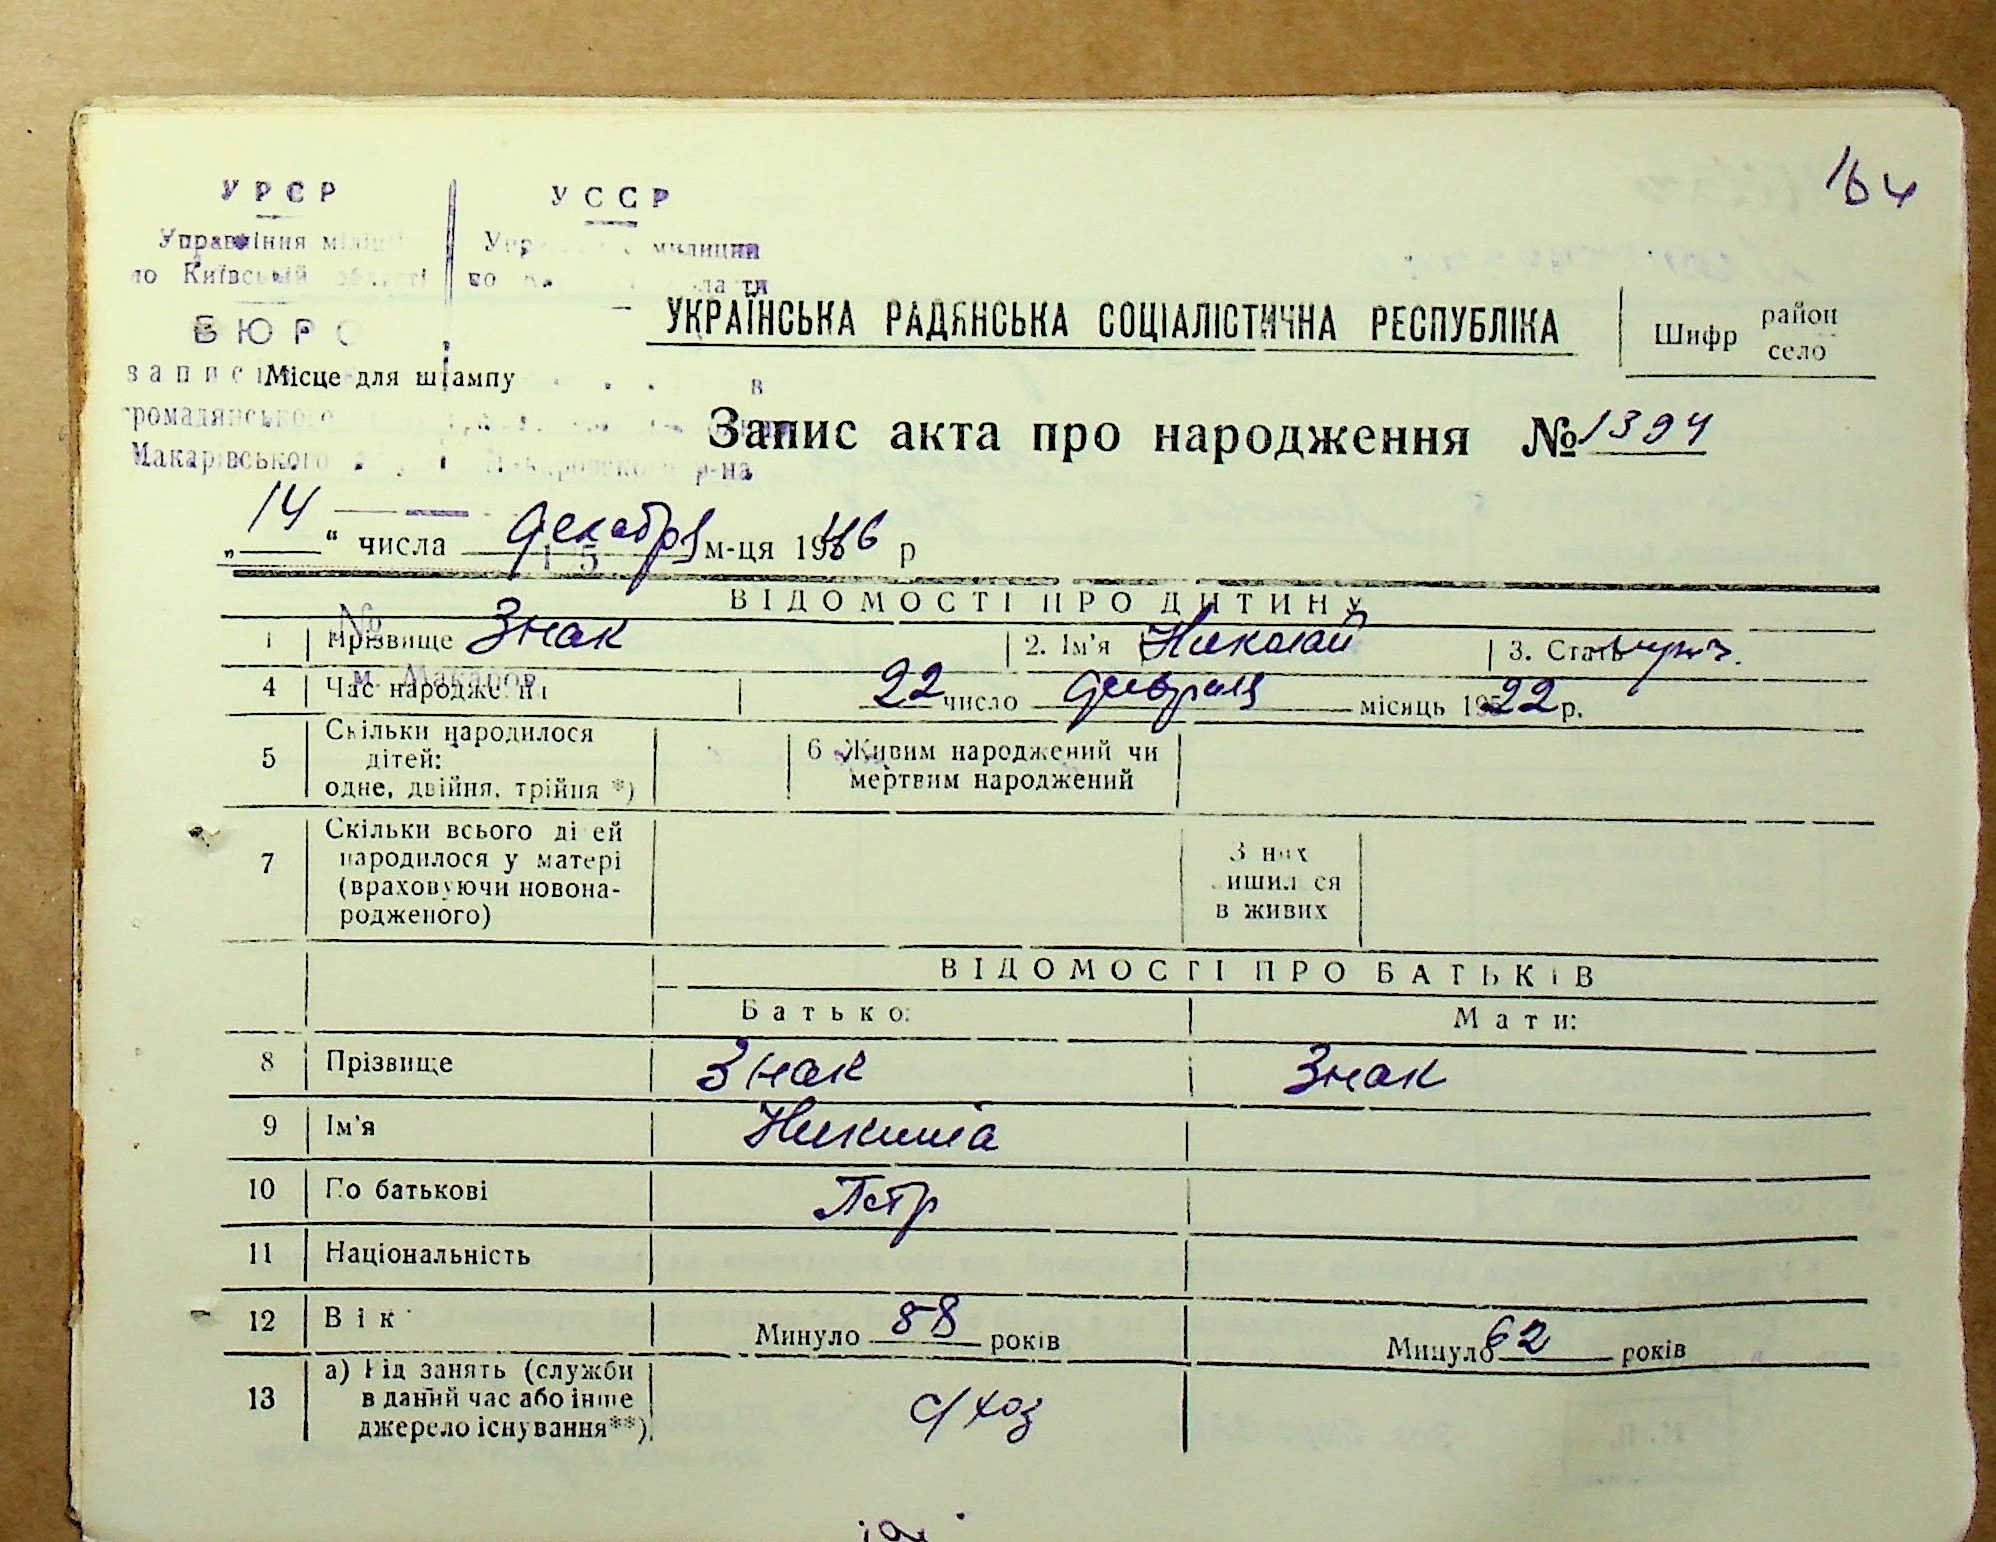 164
УРСР УССР
Управління міліції милиции
по Київській області по
БЮРО
УКРАЇНСЬКА РАДЯНСЬКА СОЦІАЛІСТИЧНА РЕСПУБЛІКА
Шифр район село
Місце для штампу
громадянського
Макарівського р-на
Запис акта про народження № 1394
„14“ числа декабря м-ця 1946 р
15
ВІДОМОСТІ ПРО ДИТИНУ
№
1 Прізвище Знак 2. Ім'я Николай 3. Стать муж.
м. Макаров
4 Час народження 22 число февраля місяць 1922 р.
5 Скільки народилося дітей: одне, двійня, трійня *) 6 Живим народжений чи мертвим народжений
7 Скільки всього дітей народилося у матері (враховуючи новонародженого) З них лишилося в живих
ВІДОМОСТІ ПРО БАТЬКІВ
Батько: Мати:
8 Прізвище Знак Знак
9 Ім'я Никита
10 По батькові Петр
11 Національність
12 Вік Минуло 88 років Минуло 62 років
13 а) Рід занять (служби в даний час або інше джерело існування**) с/хоз